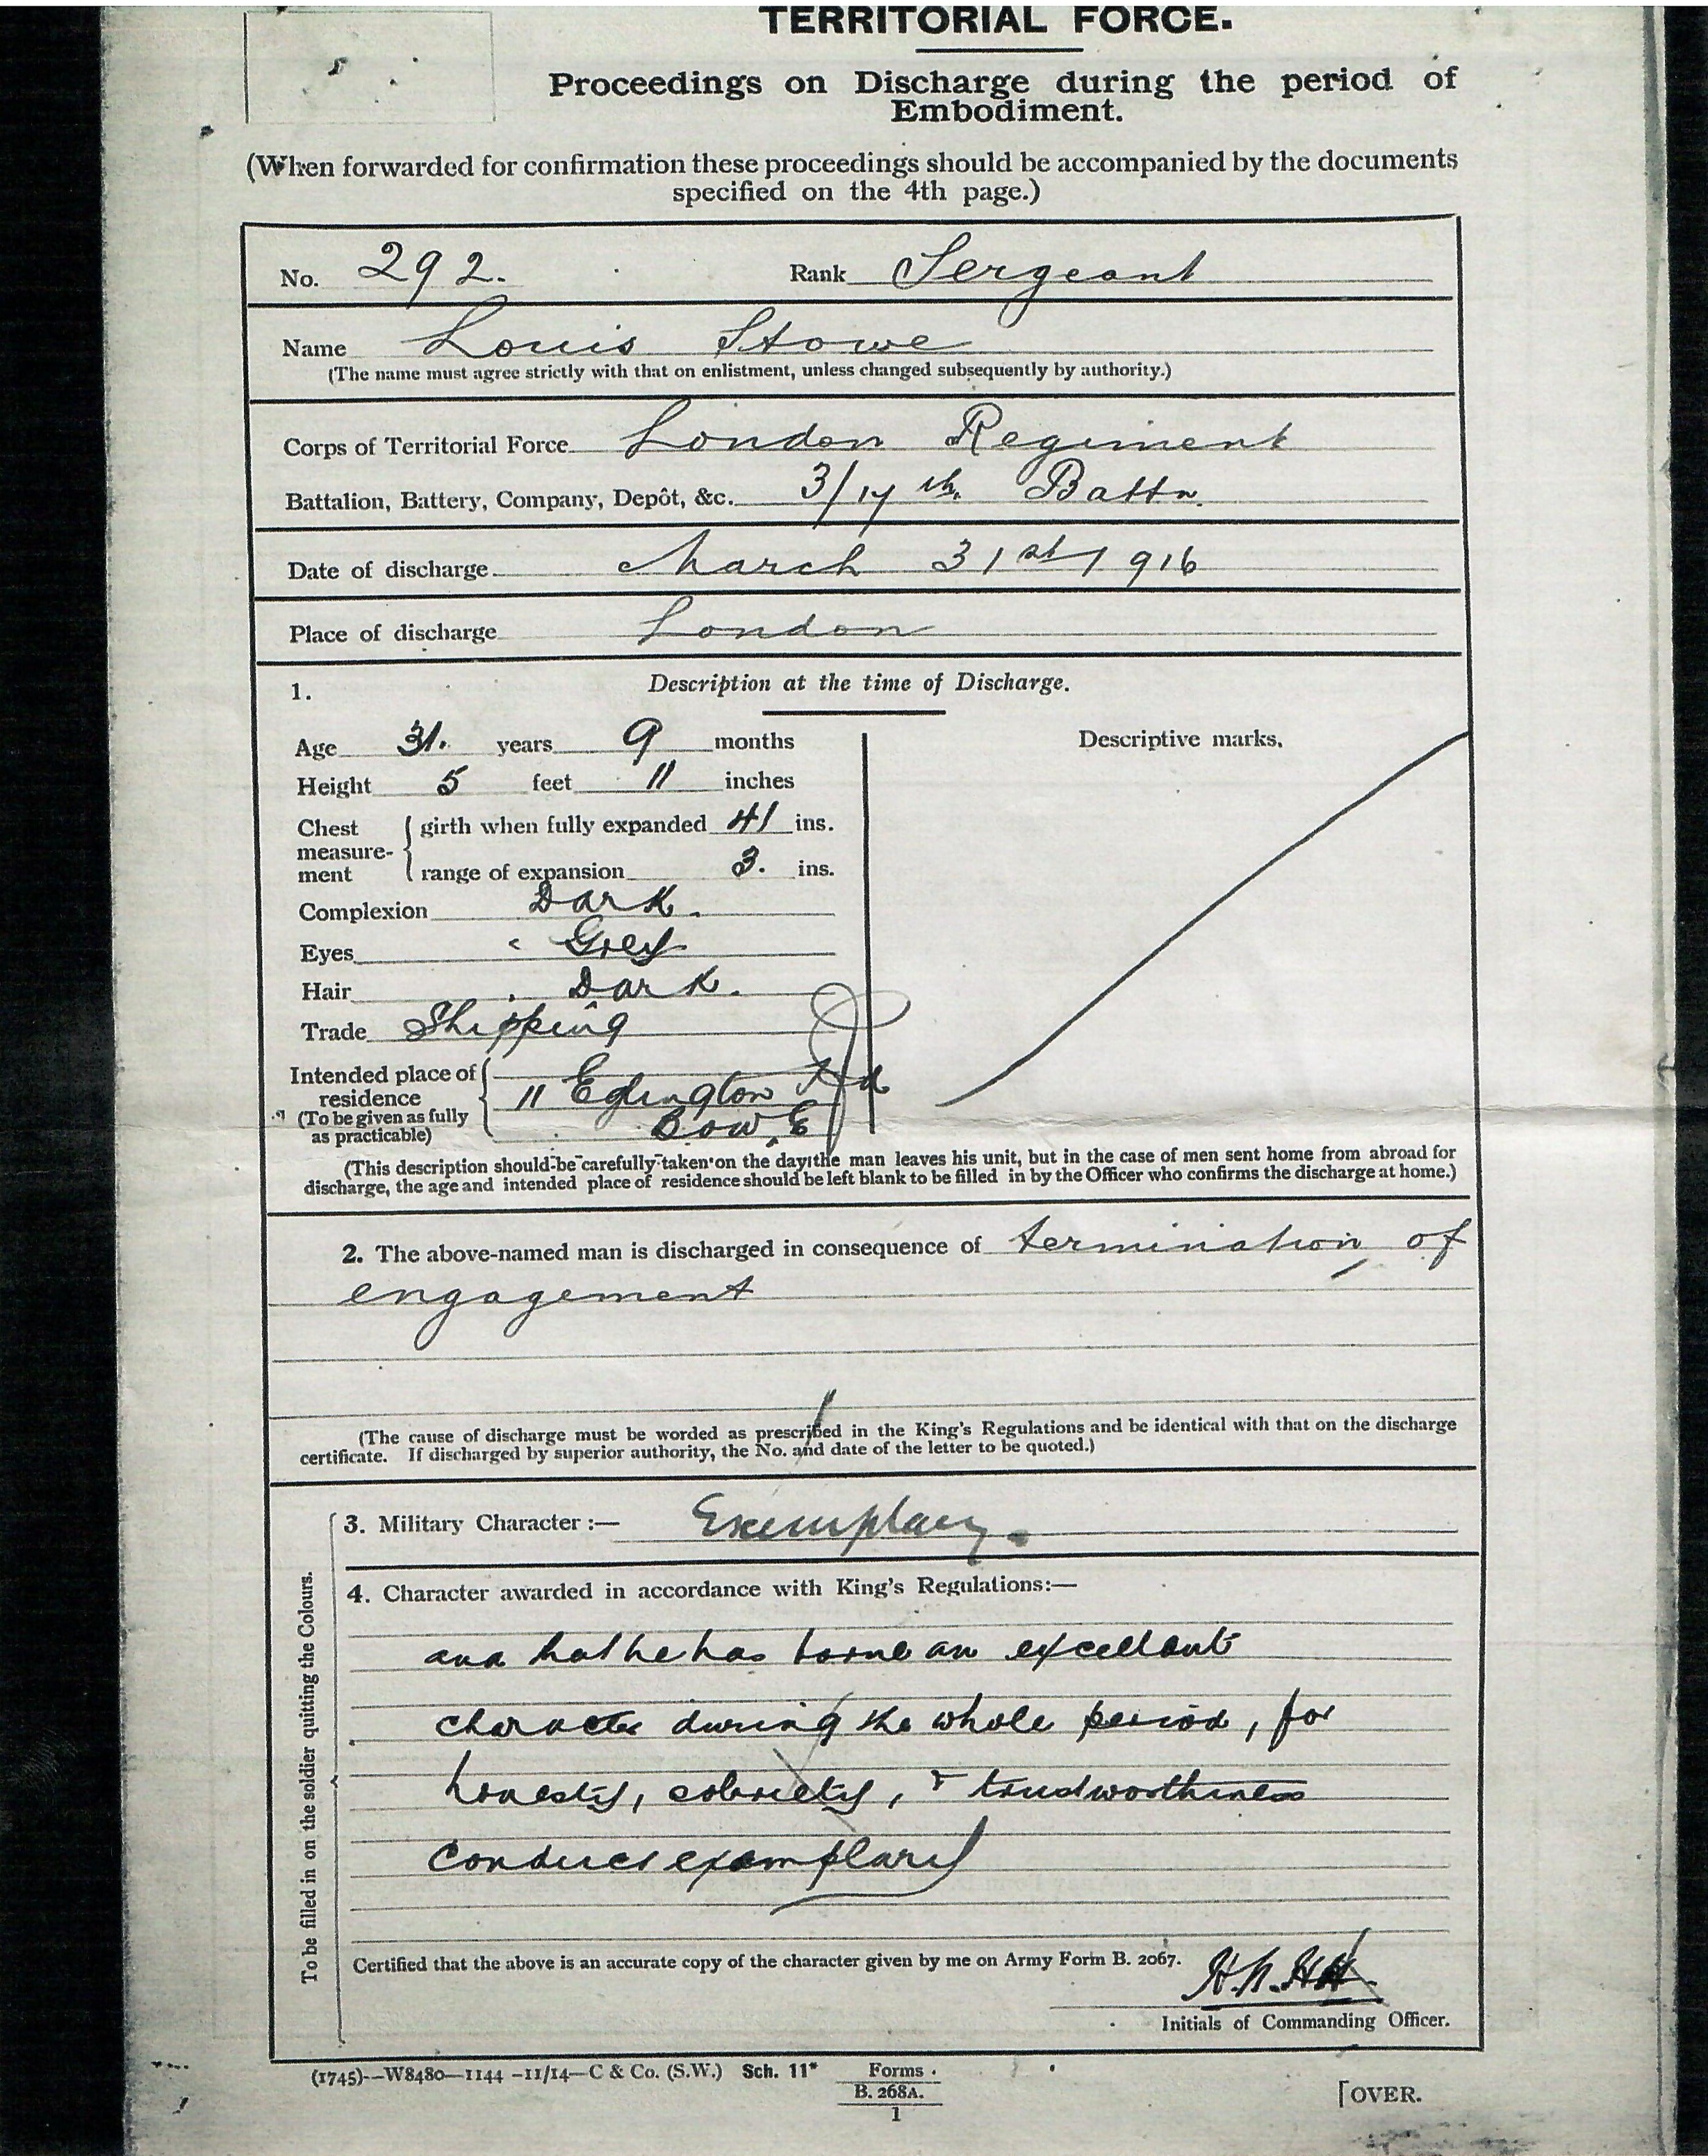 TERRITORIAL FORCE.
Proceedings on Discharge during the period of
Embodiment.
(When forwarded for confirmation these proceedings should be accompanied by the documents
specified on the 4th page.)
No. 292. Rank Sergeant
Name Louis Stowe
(The name must agree strictly with that on enlistment, unless changed subsequently by authority.)
Corps of Territorial Force London Regiment
Battalion, Battery, Company, Depôt, &c. 3/17th Battn.
Date of discharge March 31st 1916
Place of discharge London
1. Description at the time of Discharge.
Age 31. years 9 months
Height 5 feet 11 inches
Chest measure-ment { girth when fully expanded 41 ins.
range of expansion 3. ins.
Complexion Dark.
Eyes Grey
Hair Dark.
Trade Shipping
Intended place of residence (To be given as fully as practicable) { 11 Eglington Rd
Bow, E
Descriptive marks.
(This description should be carefully taken on the day the man leaves his unit, but in the case of men sent home from abroad for
discharge, the age and intended place of residence should be left blank to be filled in by the Officer who confirms the discharge at home.)
2. The above-named man is discharged in consequence of termination of
engagement
(The cause of discharge must be worded as prescribed in the King's Regulations and be identical with that on the discharge
certificate. If discharged by superior authority, the No. and date of the letter to be quoted.)
To be filled in on the soldier quitting the Colours.
3. Military Character:— Exemplary.
4. Character awarded in accordance with King's Regulations:—
and that he has borne an excellent
character during the whole period, for
honesty, sobriety, & trustworthiness
Conduct exemplary
Certified that the above is an accurate copy of the character given by me on Army Form B. 2067.
Initials of Commanding Officer.
(1745)—W8480—1144—11/14—C & Co. (S.W.) Sch. 11* Forms
B. 268A.
1
[OVER.